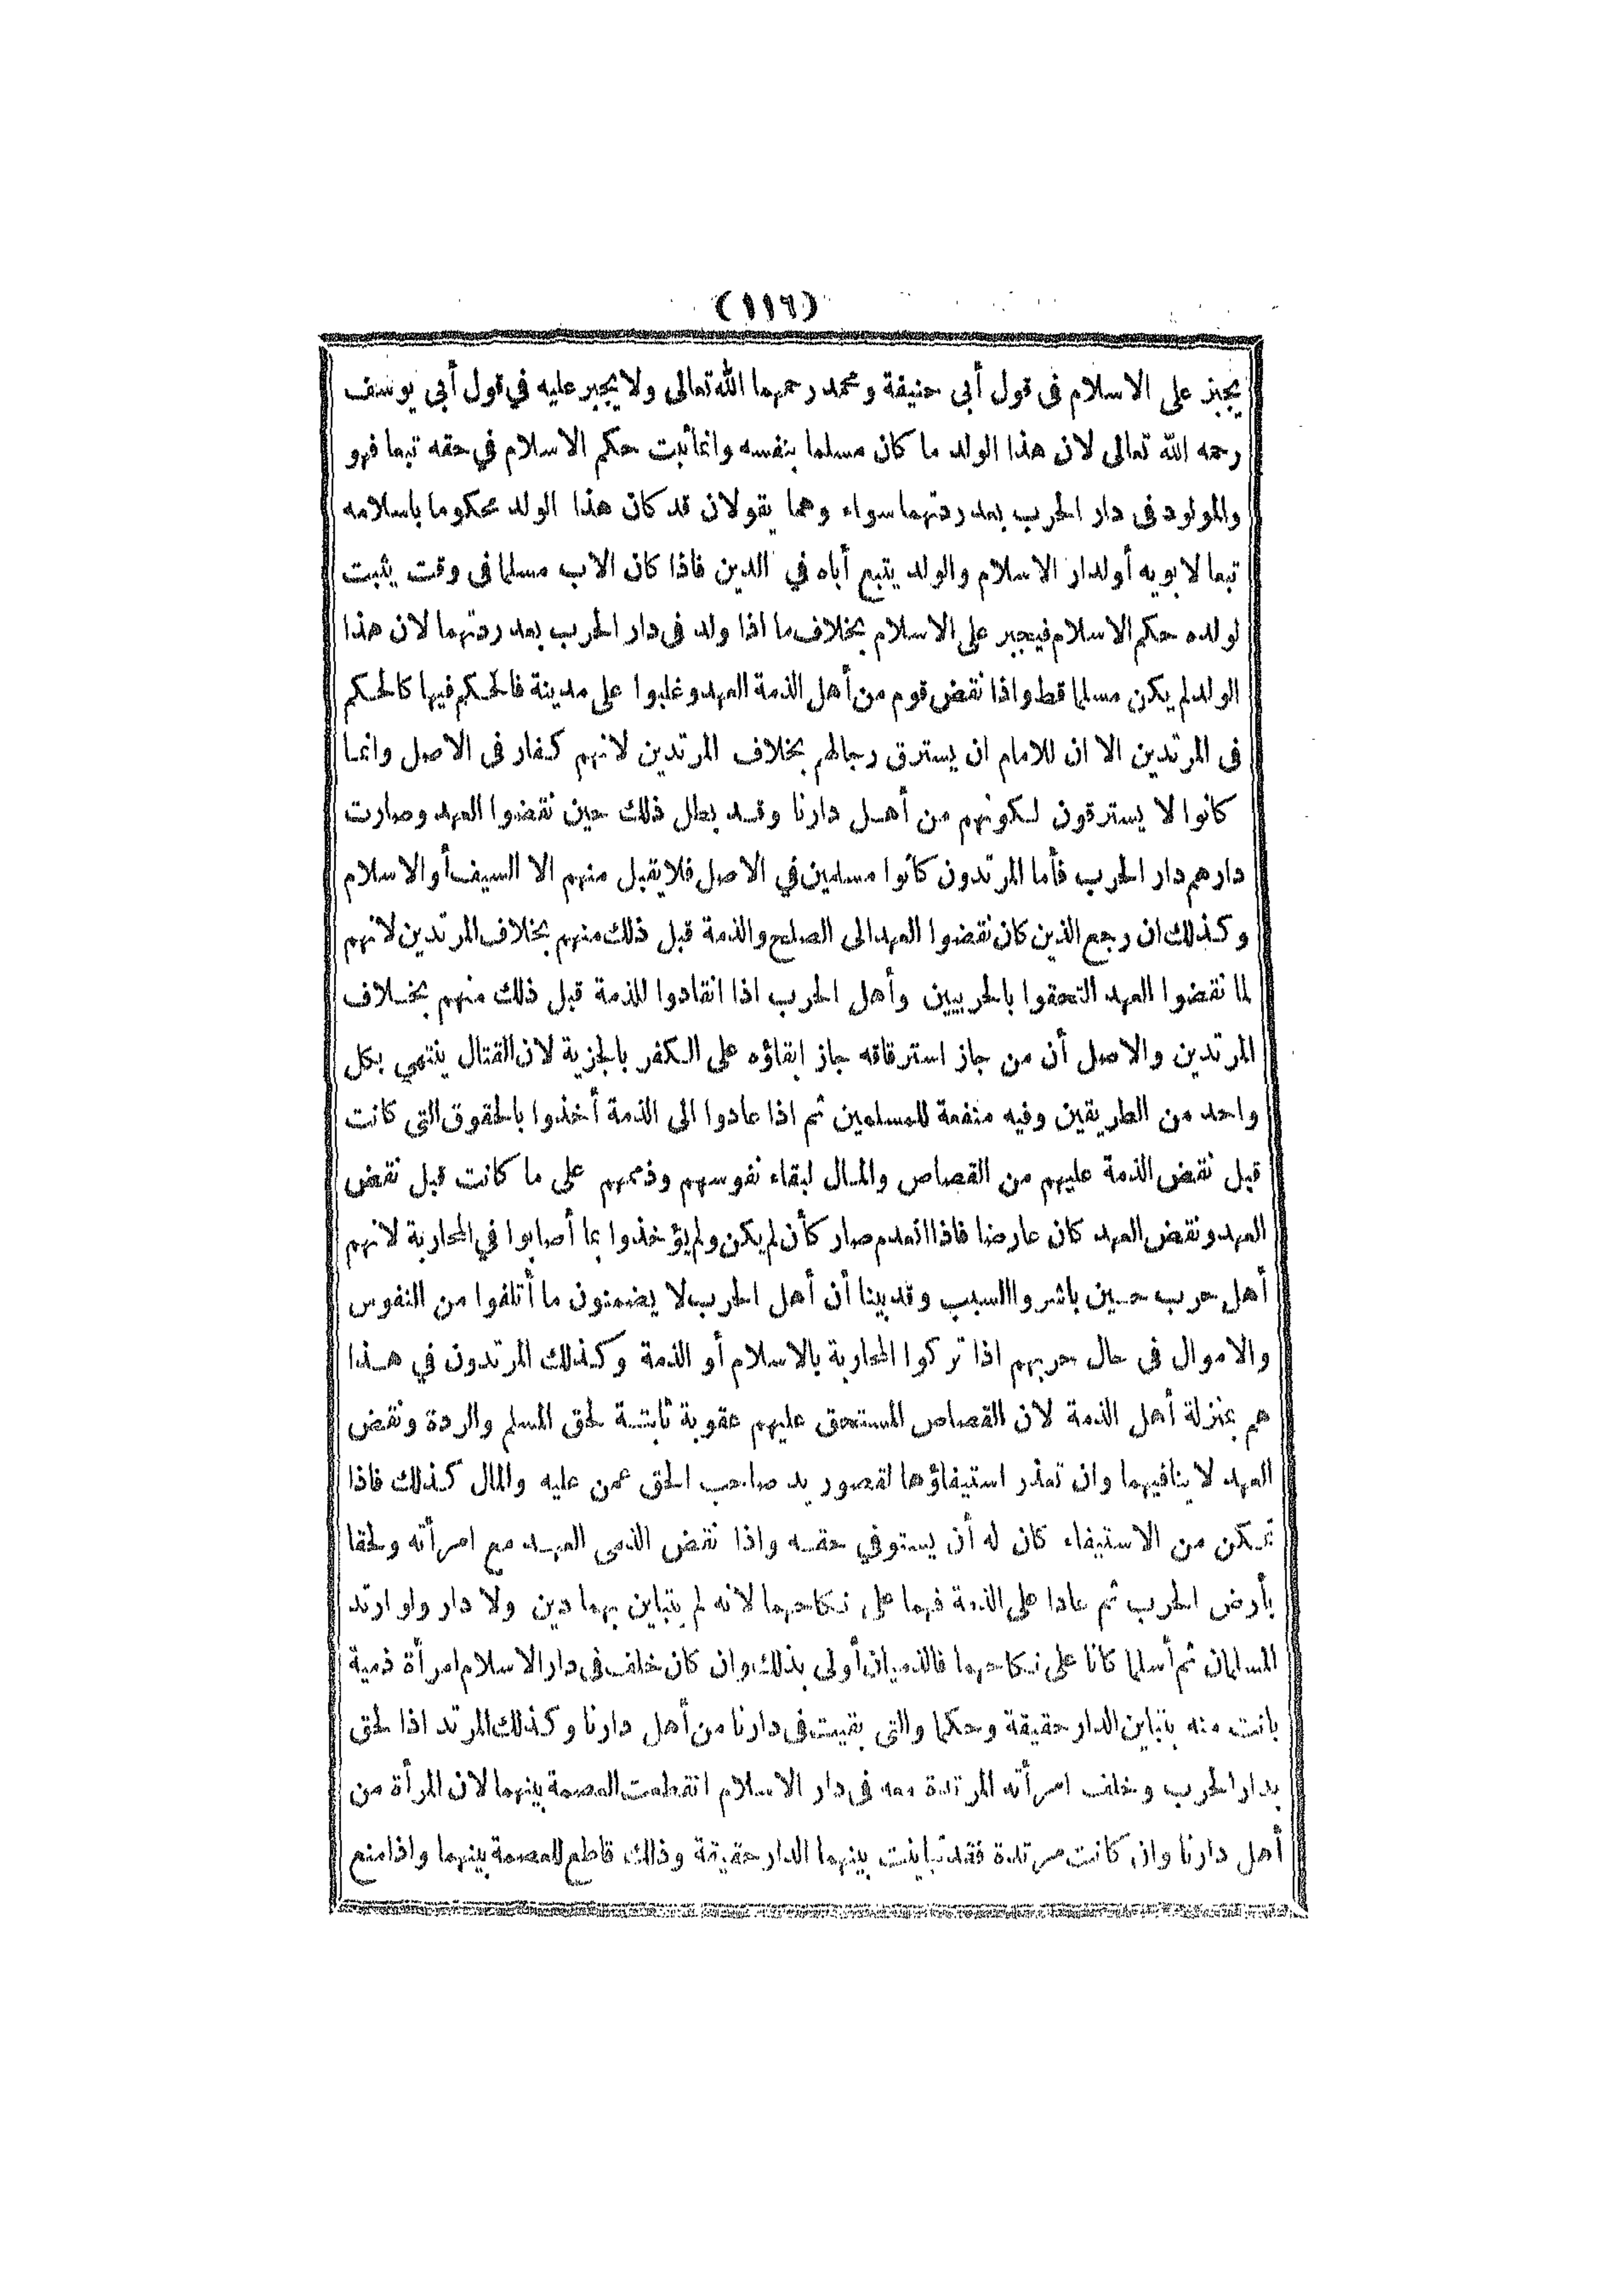 (١١٦)
يجبر على الاسلام فى قول أبى حنيفة ومحمد رحمهما الله تعالى ولا يجبر عليه في قول أبى يوسف
رحمه الله تعالى لان هذا الولد ما كان مسلما بنفسه وانما ثبت حكم الاسلام في حقه تبعا فهو
والمولود فى دار الحرب بعد ردتهما سواء وهما يقولان قد كان هذا الولد محكوما باسلامه
تبعا لابويه أو لدار الاسلام والولد يتبع أباه في الدين فاذا كان الاب مسلما فى وقت يثبت
لولده حكم الاسلام فيجبر على الاسلام بخلاف ما اذا ولد فى دار الحرب بعد ردتهما لان هذا
الولد لم يكن مسلما قط واذا نقض قوم من أهل الذمة العهد وغلبوا على مدينة فالحكم فيها كالحكم
فى المرتدين الا ان للامام ان يسترق رجالهم بخلاف المرتدين لانهم كفار فى الاصل وانما
كانوا لا يسترقون لكونهم من أهل دارنا وقد بطل ذلك حين نقضوا العهد وصارت
دارهم دار الحرب فأما المرتدون كانوا مسلمين في الاصل فلا يقبل منهم الا السيف أو الاسلام
وكذلك ان رجع الذين كان نقضوا العهد الى الصلح والذمة قبل ذلك منهم بخلاف المرتدين لانهم
لما نقضوا العهد التحقوا بالحربيين وأهل الحرب اذا انقادوا للذمة قبل ذلك منهم بخلاف
المرتدين والاصل أن من جاز استرقاقه جاز ابقاؤه على الكفر بالجزية لان القتال ينتهي بكل
واحد من الطريقين وفيه منفعة للمسلمين ثم اذا عادوا الى الذمة أخذوا بالحقوق التى كانت
قبل نقض الذمة عليهم من القصاص والمال لبقاء نفوسهم وذممهم على ما كانت قبل نقض
العهد ونقض العهد كان عارضا فاذا انعدم صار كأن لم يكن ولم يؤخذوا بما أصابوا في المحاربة لانهم
أهل حرب حين باشروا السبب وقد بينا أن أهل الحرب لا يضمنون ما أتلفوا من النفوس
والاموال فى حال حربهم اذا تركوا المحاربة بالاسلام أو الذمة وكذلك المرتدون في هذا
هم بمنزلة أهل الذمة لان القصاص المستحق عليهم عقوبة ثابتة لحق المسلم والردة ونقض
العهد لا ينافيهما وان تعذر استيفاؤها لقصور يد صاحب الحق عمن عليه والمال كذلك فاذا
تمكن من الاستيفاء كان له أن يستوفي حقه واذا نقض الذمى العهد مع امرأته ولحقا
بأرض الحرب ثم عادا على الذمة فهما على نكاحهما لانه لم يتباين بهما دين ولا دار ولو ارتد
المسلمان ثم أسلما كانا على نكاحهما فالذميان أولى بذلك وان كان خلف فى دار الاسلام امرأة ذمية
بانت منه بتباين الدار حقيقة وحكما والتى بقيت فى دارنا من أهل دارنا وكذلك المرتد اذا لحق
بدار الحرب وخلف امرأته المرتدة معه فى دار الاسلام انقطعت العصمة بينهما لان المرأة من
أهل دارنا وان كانت مرتدة فقد تباينت بينهما الدار حقيقة وذلك قاطع للعصمة بينهما واذا منع